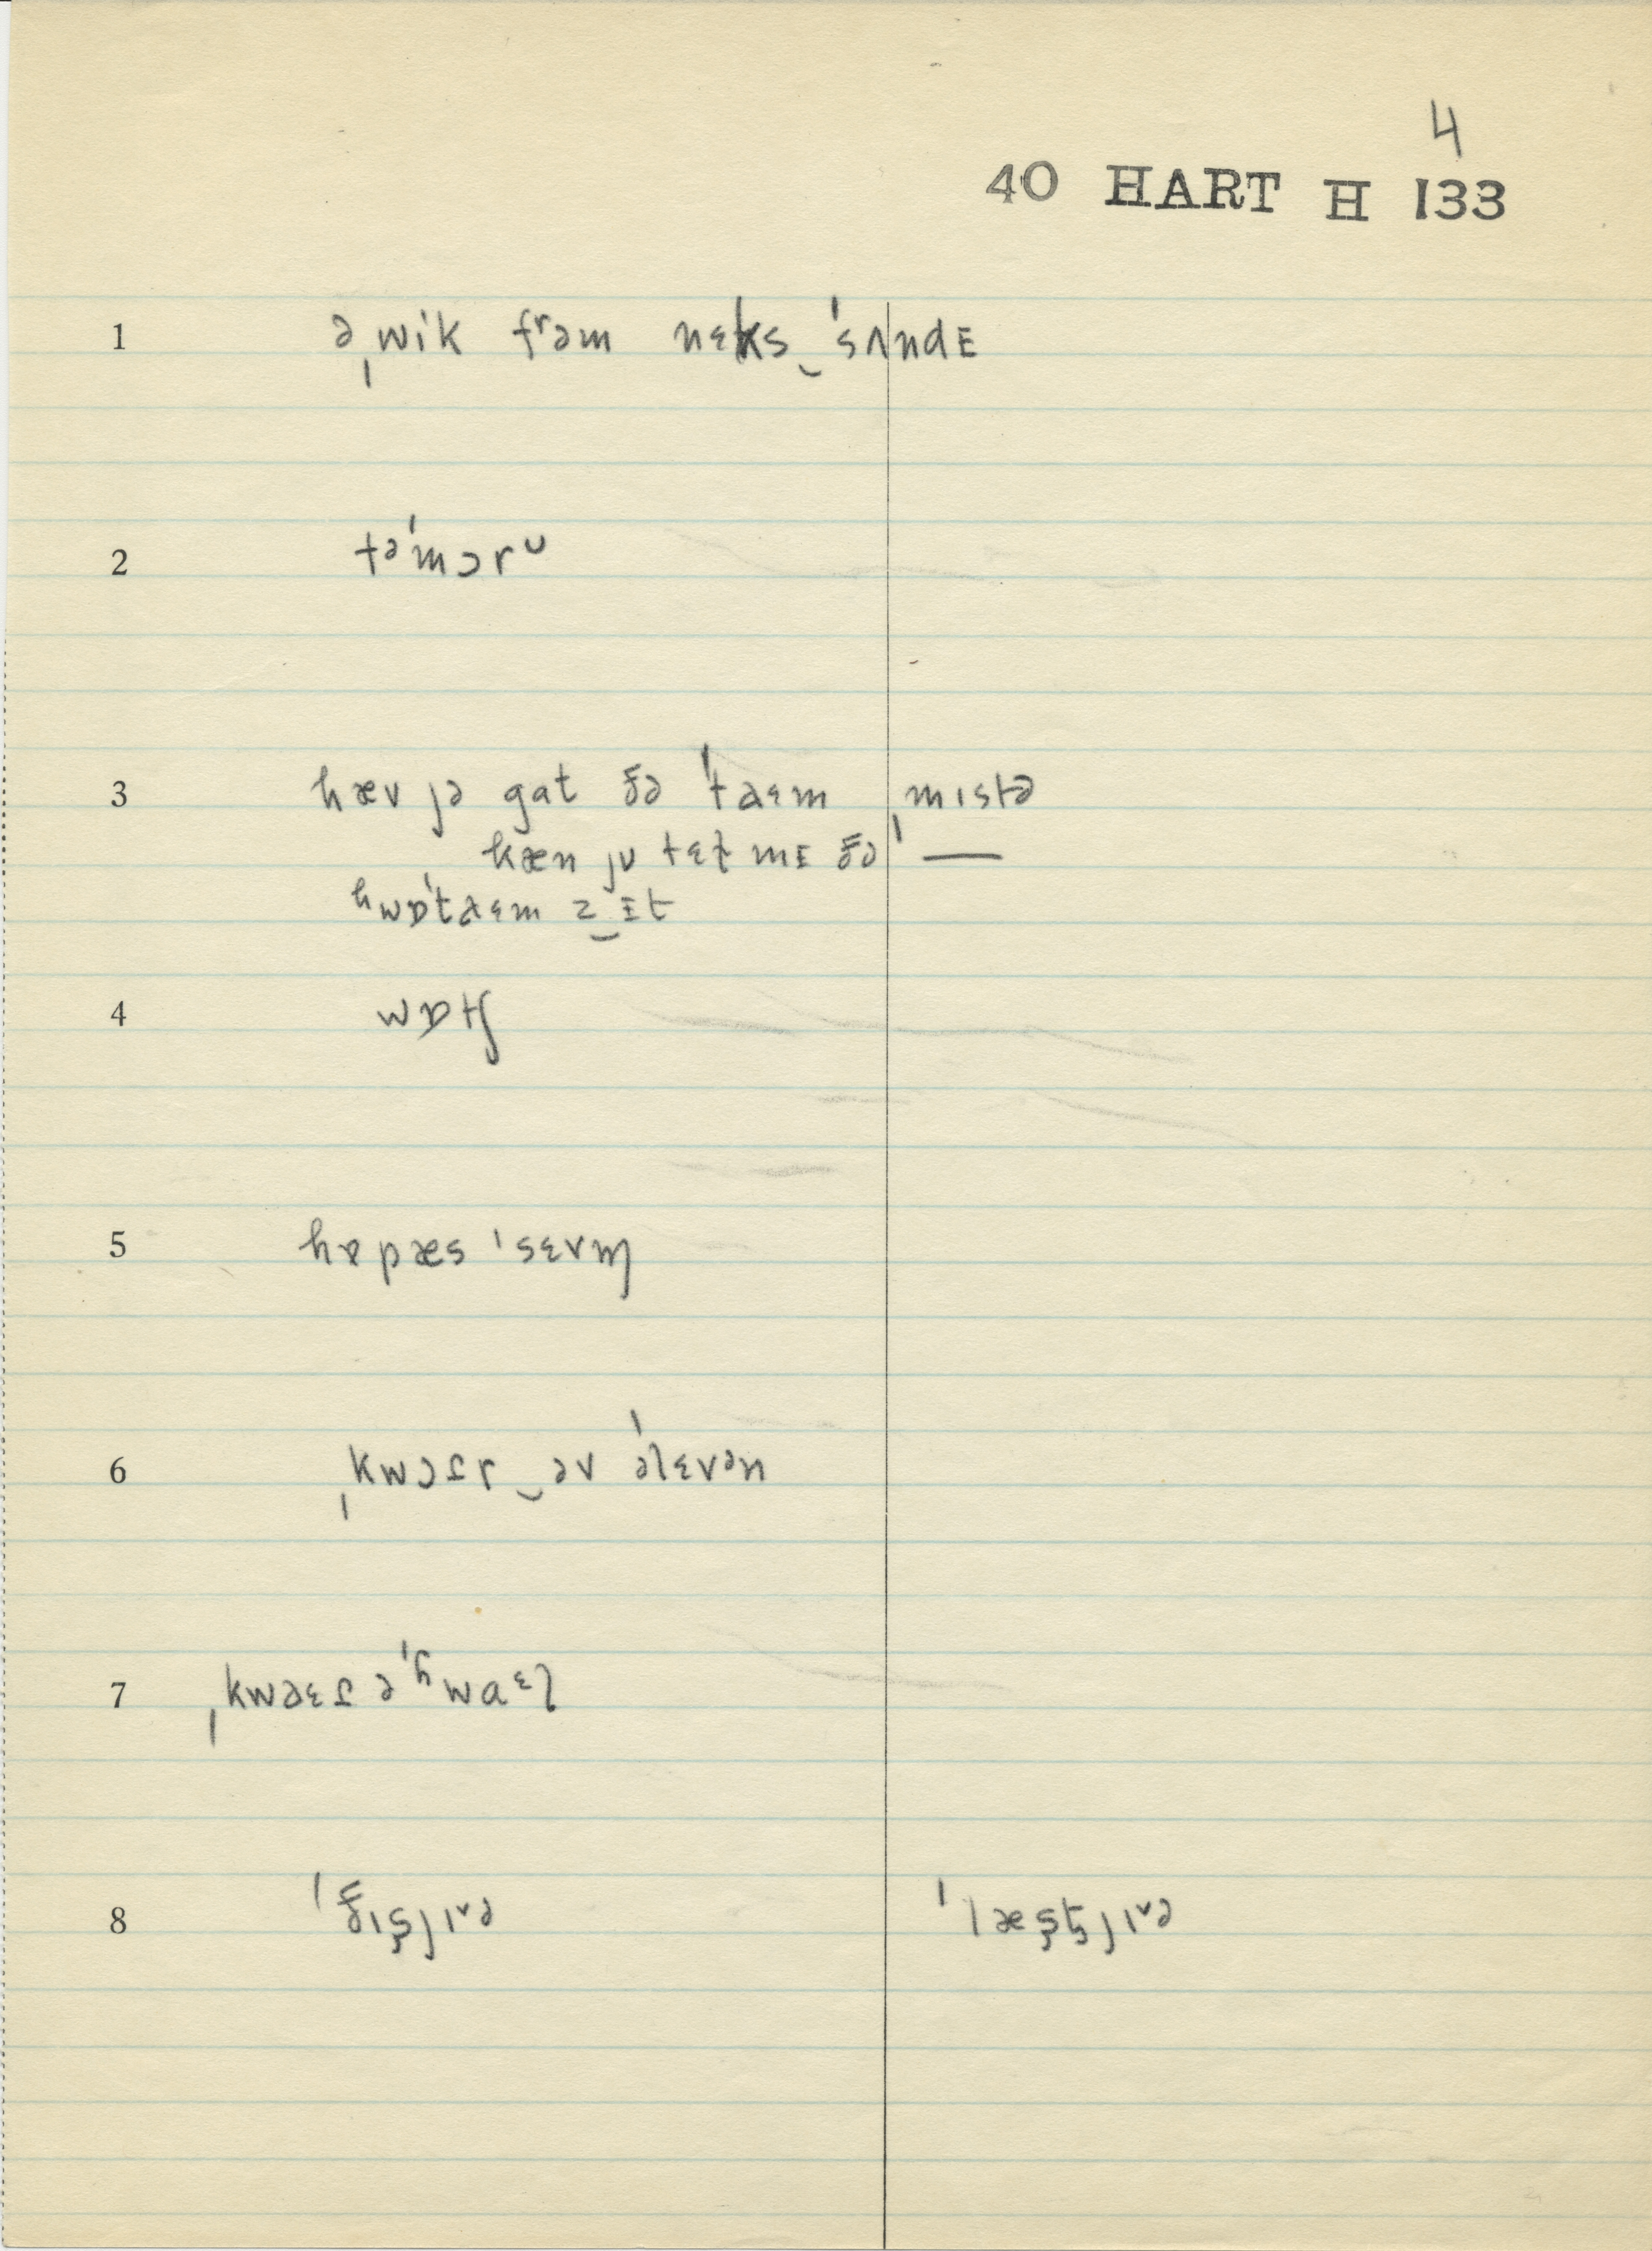 4
40 HART H 133
1 əˌwik frəm nɛks‿ˈsʌndE
2 təˈmɔrᴜ
3 hæv jə gɑt ðə ˈtaɛm ˌmɪstə
kæn jᴜ tɛɫ mE ðə —
ʰwɒˈtaɛm z‿Et
4 wɒtʃ
5 hɐpæs ˈsɛvm̩
6 ˌkwɔɾr‿əv əˈlɛvən
7 ˌkwəɛɾ əˈʰwaᵋl
8 ˈðɪşjɪᵛə ˈlæşţjɪᵛə